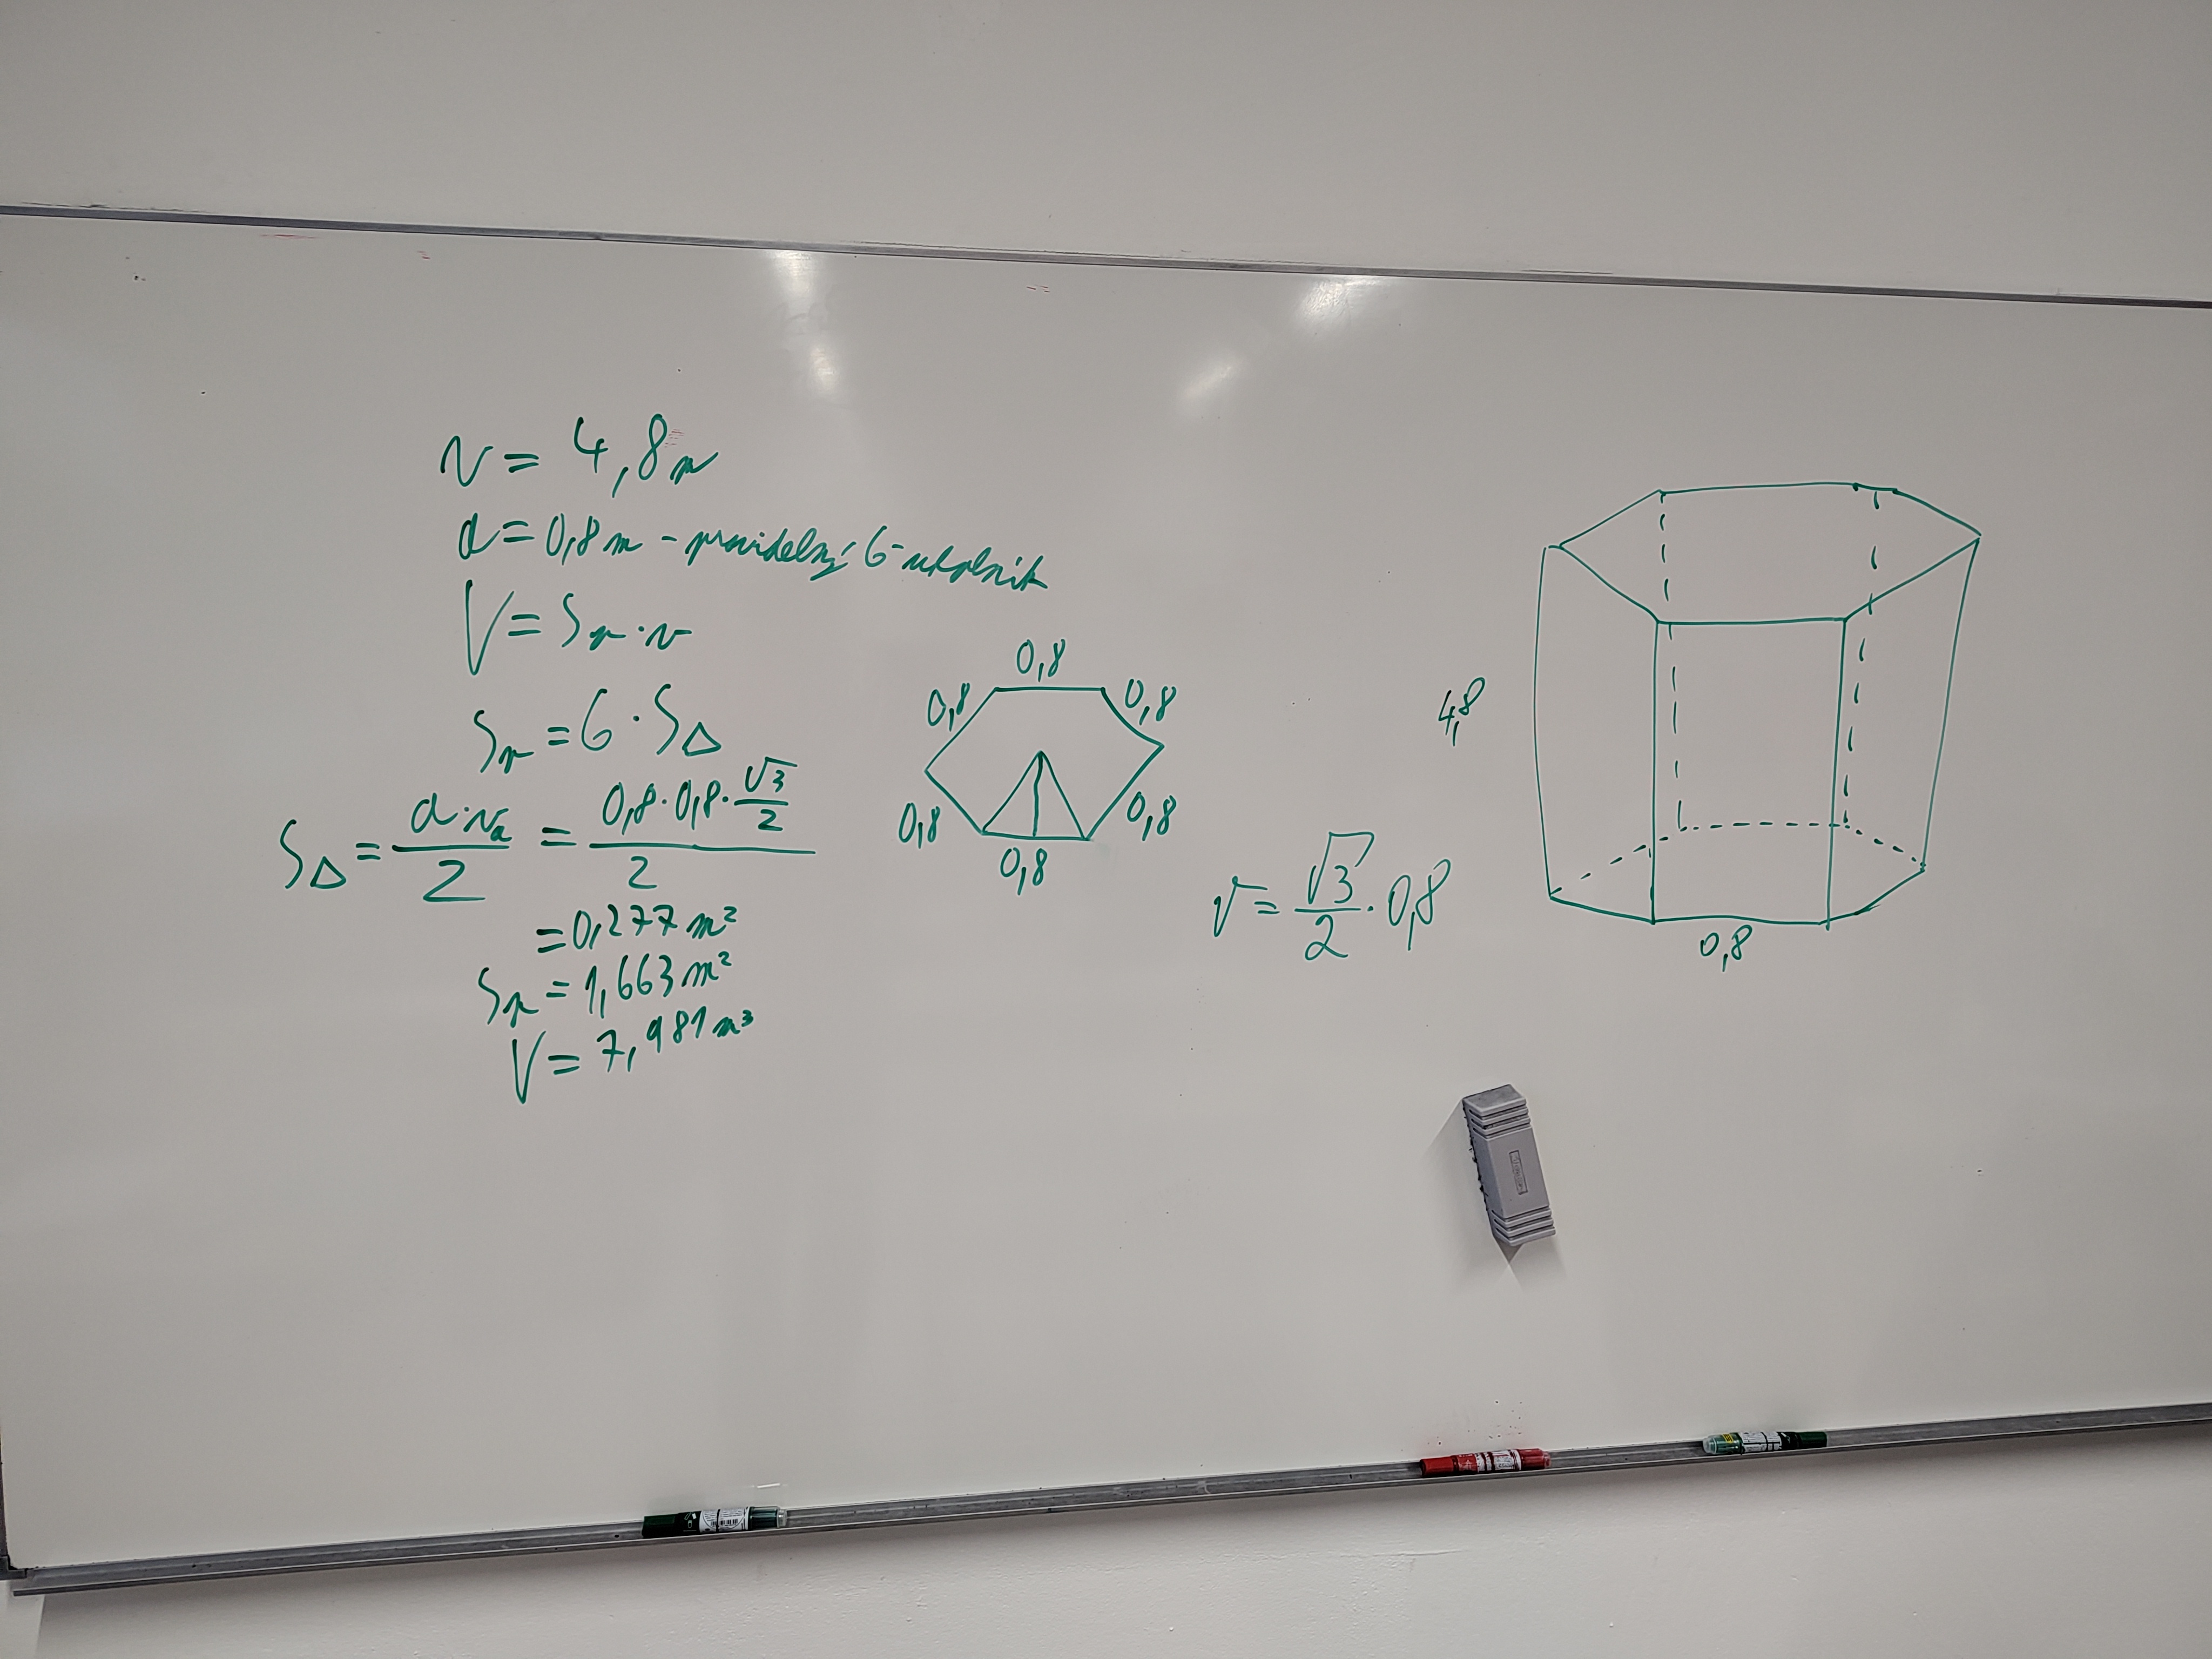 v = 4,8m
a = 0,8m - pravidelný 6-uholník
V = Sp · v
Sp = 6 · S△
S△ = a·va / 2 = 0,8·0,8·√3/2 / 2
= 0,277 m²
Sp = 1,663 m²
V = 7,981 m³
0,8
0,8
0,8
0,8
0,8
0,8
v = √3/2 · 0,8
4,8
0,8